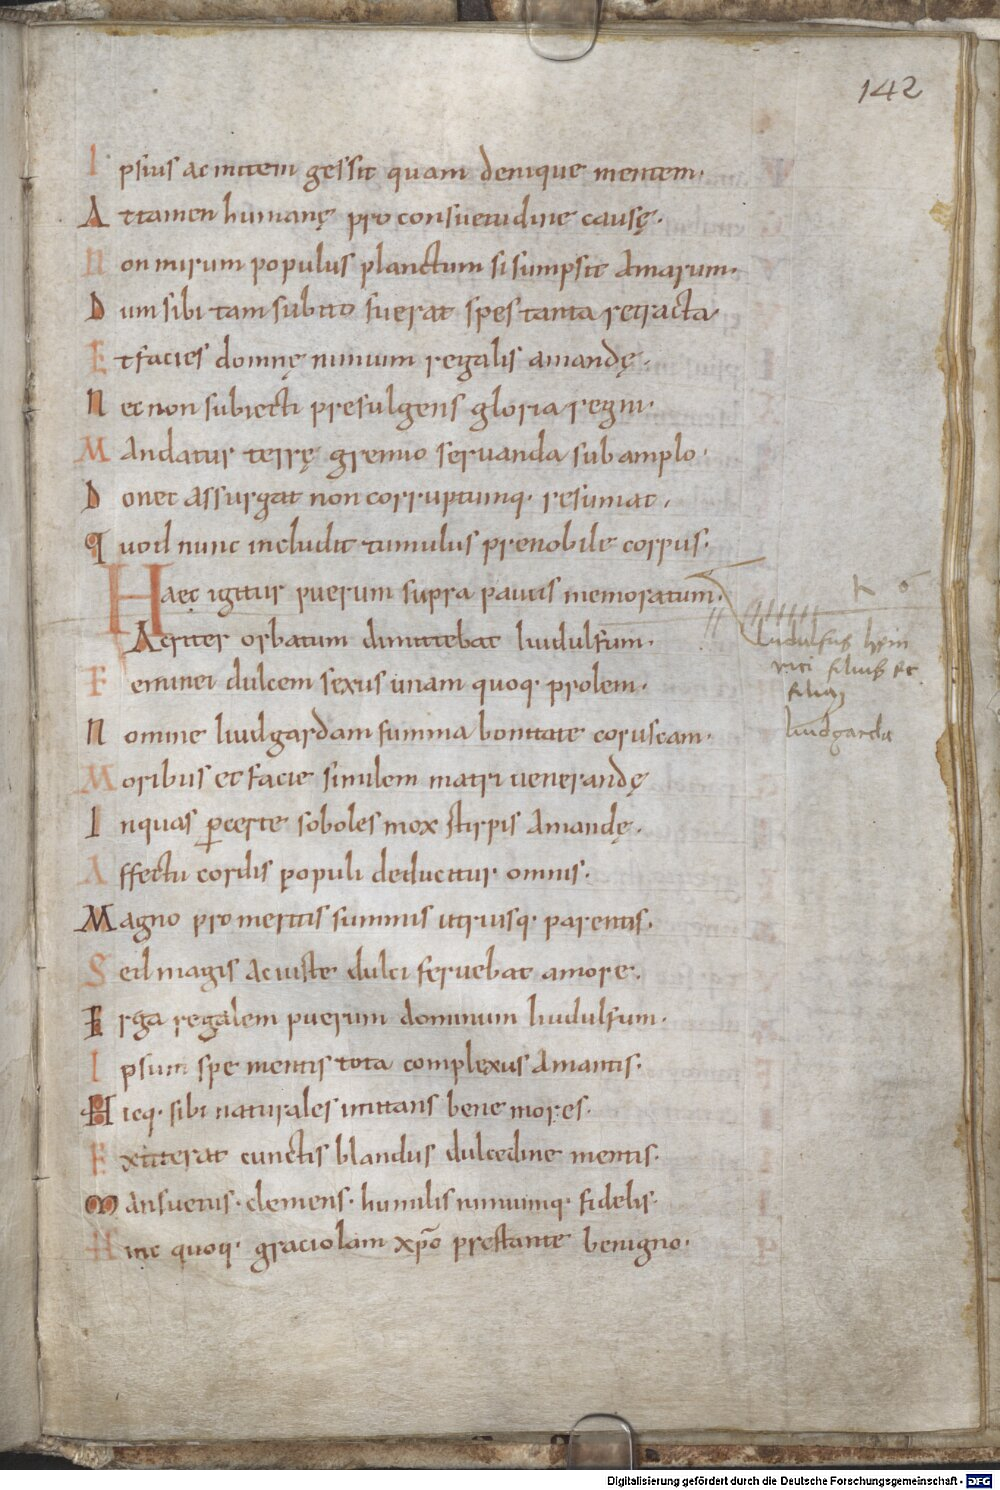 142
Ipsius ac mitem gessit quam denique mentem·
Attamen humanę pro consuetudine causę·
Non mirum populus planctum si sumpsit amarum·
Dum sibi tam subito fuerat spes tanta retracta
Et facies domnę nimium regalis amandę·
Nec non subiecti presulgens gloria regni·
Mandatur terrę gremio seruanda sub amplo·
Donec assurgat non corruptumq· resumat,
Quod nunc includit tumulus prenobile corpus·
Haec igitur puerum supra paucis memoratum·
Acriter orbatum dimittebat liudulfum·
Feminei dulcem sexus unam quoq· prolem·
Nomine liudgardam summa bonitate coruscam·
Moribus et facie similem matri uenerandę
Inquas ꝑcerte soboles mox stirpis amandę·
Affectu cordis populi deducitur omnis·
Magno pro meritis summis utriusq· parentis·
Sed magis ac iuste dulci feruebat amore·
Erga regalem puerum dominum liudulfum·
Ipsum spe mentis tota complexus amantis·
Hicq· sibi naturales imitans bene mores·
Extiterat cunctis blandus dulcedine mentis·
Mansuetus· clemens· humilis nimiumq· fidelis·
Hinc quoq· graciolam xp̄o prestante benigno·
Liudulfus hein
rici filius et
filia
liudgarda
Digitalisierung gefördert durch die Deutsche Forschungsgemeinschaft - DFG